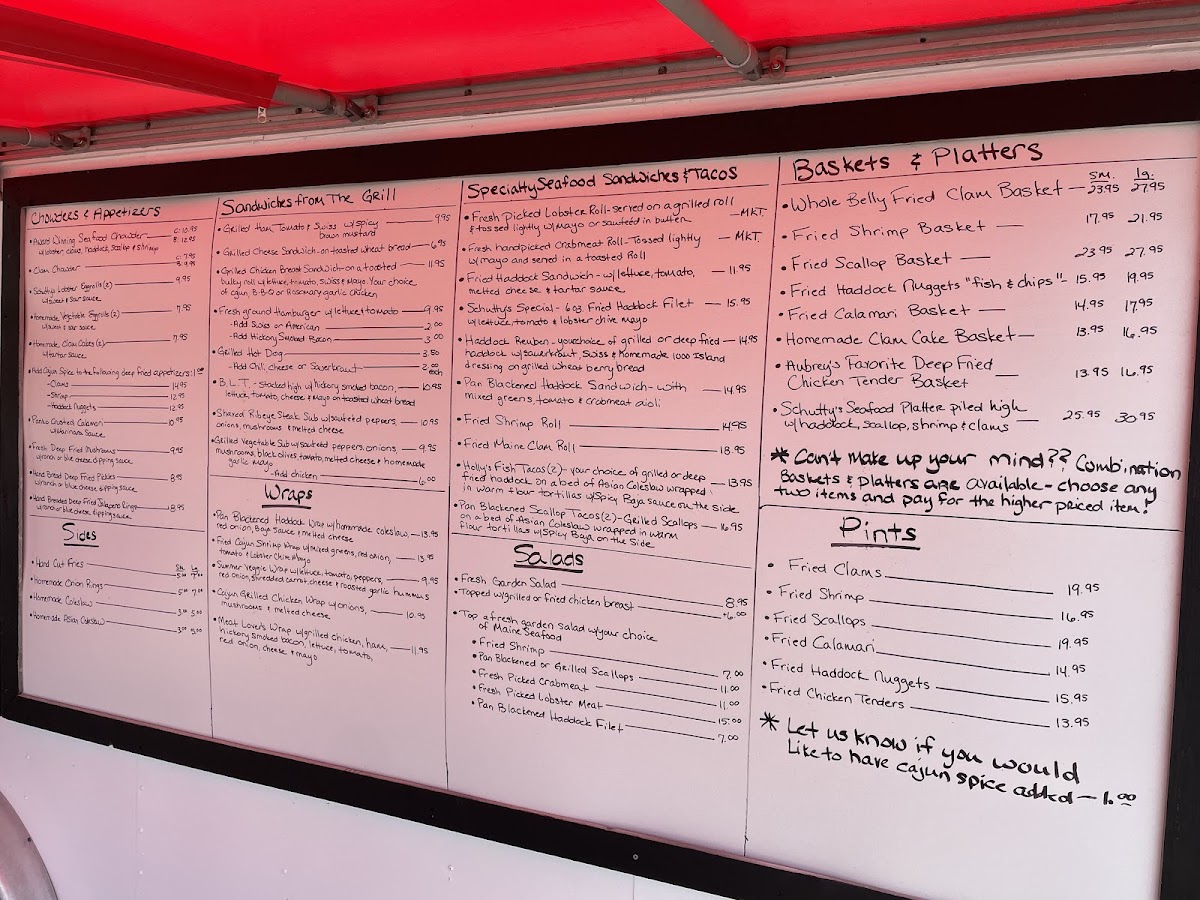 Chowders & Appetizers
• Award Winning Seafood Chowder — C: 10.95
w/lobster, clams, haddock, scallop & shrimp B: 12.95
• Clam Chowder — C: 7.95
B: 9.95
• Schutty's Lobster Eggrolls (2) — 9.95
w/sweet & sour sauce
• Homemade Vegetable Eggrolls (2) — 7.95
w/sweet & sour sauce
• Homemade Clam Cakes (2) — 7.95
w/tartar sauce
• Add Cajun Spice to the following deep fried appetizers: 1.00
- Clams — 14.95
- Shrimp — 12.95
- Haddock Nuggets — 12.95
• Panko Crusted Calamari — 10.95
w/Marinara Sauce
• Fresh Deep Fried Mushrooms — 9.95
w/ranch or blue cheese dipping sauce
• Hand Bread Deep Fried Pickles — 8.95
w/ranch or blue cheese dipping sauce
• Hand Breaded Deep Fried Jalapeno Rings — 8.95
w/ranch or blue cheese dipping sauce
Sides
Sm. Lg.
• Hand Cut Fries — 5.00 7.00
• Homemade Onion Rings — 5.00 7.00
• Homemade Coleslaw — 3.00 5.00
• Homemade Asian Coleslaw — 3.00 5.00
Sandwiches from The Grill
• Grilled Ham, Tomato & Swiss w/spicy — 9.95
brown mustard
• Grilled Cheese Sandwich - on toasted wheat bread — 6.95
• Grilled Chicken Breast Sandwich - on a toasted — 11.95
bulky roll w/lettuce, tomato, swiss & mayo. Your choice
of cajun, B-B-Q or Rosemary garlic chicken
• Fresh ground Hamburger w/lettuce & tomato — 9.95
- Add Swiss or American — 2.00
- Add Hickory Smoked Bacon — 3.00
• Grilled Hot Dog — 3.50
- Add Chili, Cheese or Sauerkraut — 2.00
each
• B.L.T. - Stacked high w/hickory smoked bacon, — 10.95
lettuce, tomato, cheese & Mayo on toasted wheat bread
• Shaved Ribeye Steak Sub w/sauteed peppers, — 10.95
onions, mushrooms & melted cheese
• Grilled Vegetable Sub w/sauteed peppers, onions, — 9.95
mushrooms, black olives, tomato, melted cheese & homemade
garlic mayo
- Add chicken — 6.00
Wraps
• Pan Blackened Haddock Wrap w/homemade coleslaw, — 13.95
red onion, Baja Sauce & melted cheese
• Fried Cajun Shrimp Wrap w/mixed greens, red onion, — 13.95
tomato & Lobster Chive Mayo
• Summer Veggie Wrap w/lettuce, tomato, peppers, — 9.95
red onion, shredded carrot, cheese & roasted garlic hummus
• Cajun Grilled Chicken Wrap w/onions, — 10.95
mushrooms & melted cheese
• Meat Lover's Wrap w/grilled chicken, ham, — 11.95
hickory smoked bacon, lettuce, tomato,
red onion, cheese & mayo
Specialty Seafood Sandwiches & Tacos
• Fresh Picked Lobster Roll - served on a grilled roll — MKT.
& tossed lightly w/mayo or sautéed in butter
• Fresh handpicked Crabmeat Roll - Tossed lightly — MKT.
w/mayo and served in a toasted Roll
• Fried Haddock Sandwich - w/lettuce, tomato, — 11.95
melted cheese & tartar sauce
• Schutty's Special - 6oz. Fried Haddock Filet — 15.95
w/lettuce, tomato & lobster chive mayo
• Haddock Reuben - your choice of grilled or deep fried — 14.95
haddock w/sauerkraut, Swiss & Homemade 1000 Island
dressing on grilled wheat berry bread
• Pan Blackened Haddock Sandwich - with — 14.95
mixed greens, tomato & crabmeat aioli
• Fried Shrimp Roll — 14.95
• Fried Maine Clam Roll — 18.95
• Holly's Fish Tacos (2) - your choice of grilled or deep — 13.95
fried haddock on a bed of Asian Coleslaw wrapped
in warm flour tortillas w/Spicy Baja sauce on the side
• Pan Blackened Scallop Tacos (2) - Grilled Scallops — 16.95
on a bed of Asian Coleslaw wrapped in warm
flour tortillas w/Spicy Baja on the Side
Salads
• Fresh Garden Salad — 8.95
• Topped w/grilled or fried chicken breast — +6.00
• Top a fresh garden salad w/your choice
of Maine Seafood
• Fried Shrimp — 7.00
• Pan Blackened or Grilled Scallops — 11.00
• Fresh Picked Crabmeat — 11.00
• Fresh Picked Lobster Meat — 15.00
• Pan Blackened Haddock Filet — 7.00
Baskets & Platters
Sm. Lg.
• Whole Belly Fried Clam Basket — 23.95 27.95
• Fried Shrimp Basket — 17.95 21.95
• Fried Scallop Basket — 23.95 27.95
• Fried Haddock Nuggets "fish & chips" - 15.95 19.95
• Fried Calamari Basket — 14.95 17.95
• Homemade Clam Cake Basket — 13.95 16.95
• Aubrey's Favorite Deep Fried —
Chicken Tender Basket 13.95 16.95
• Schutty's Seafood Platter piled high — 25.95 30.95
w/haddock, scallop, shrimp & clams
* Can't make up your mind?? Combination
Baskets & Platters are available - choose any
two items and pay for the higher priced item!
Pints
• Fried Clams — 19.95
• Fried Shrimp — 16.95
• Fried Scallops — 19.95
• Fried Calamari — 14.95
• Fried Haddock Nuggets — 15.95
• Fried Chicken Tenders — 13.95
* Let us know if you would
Like to have cajun spice added — 1.00